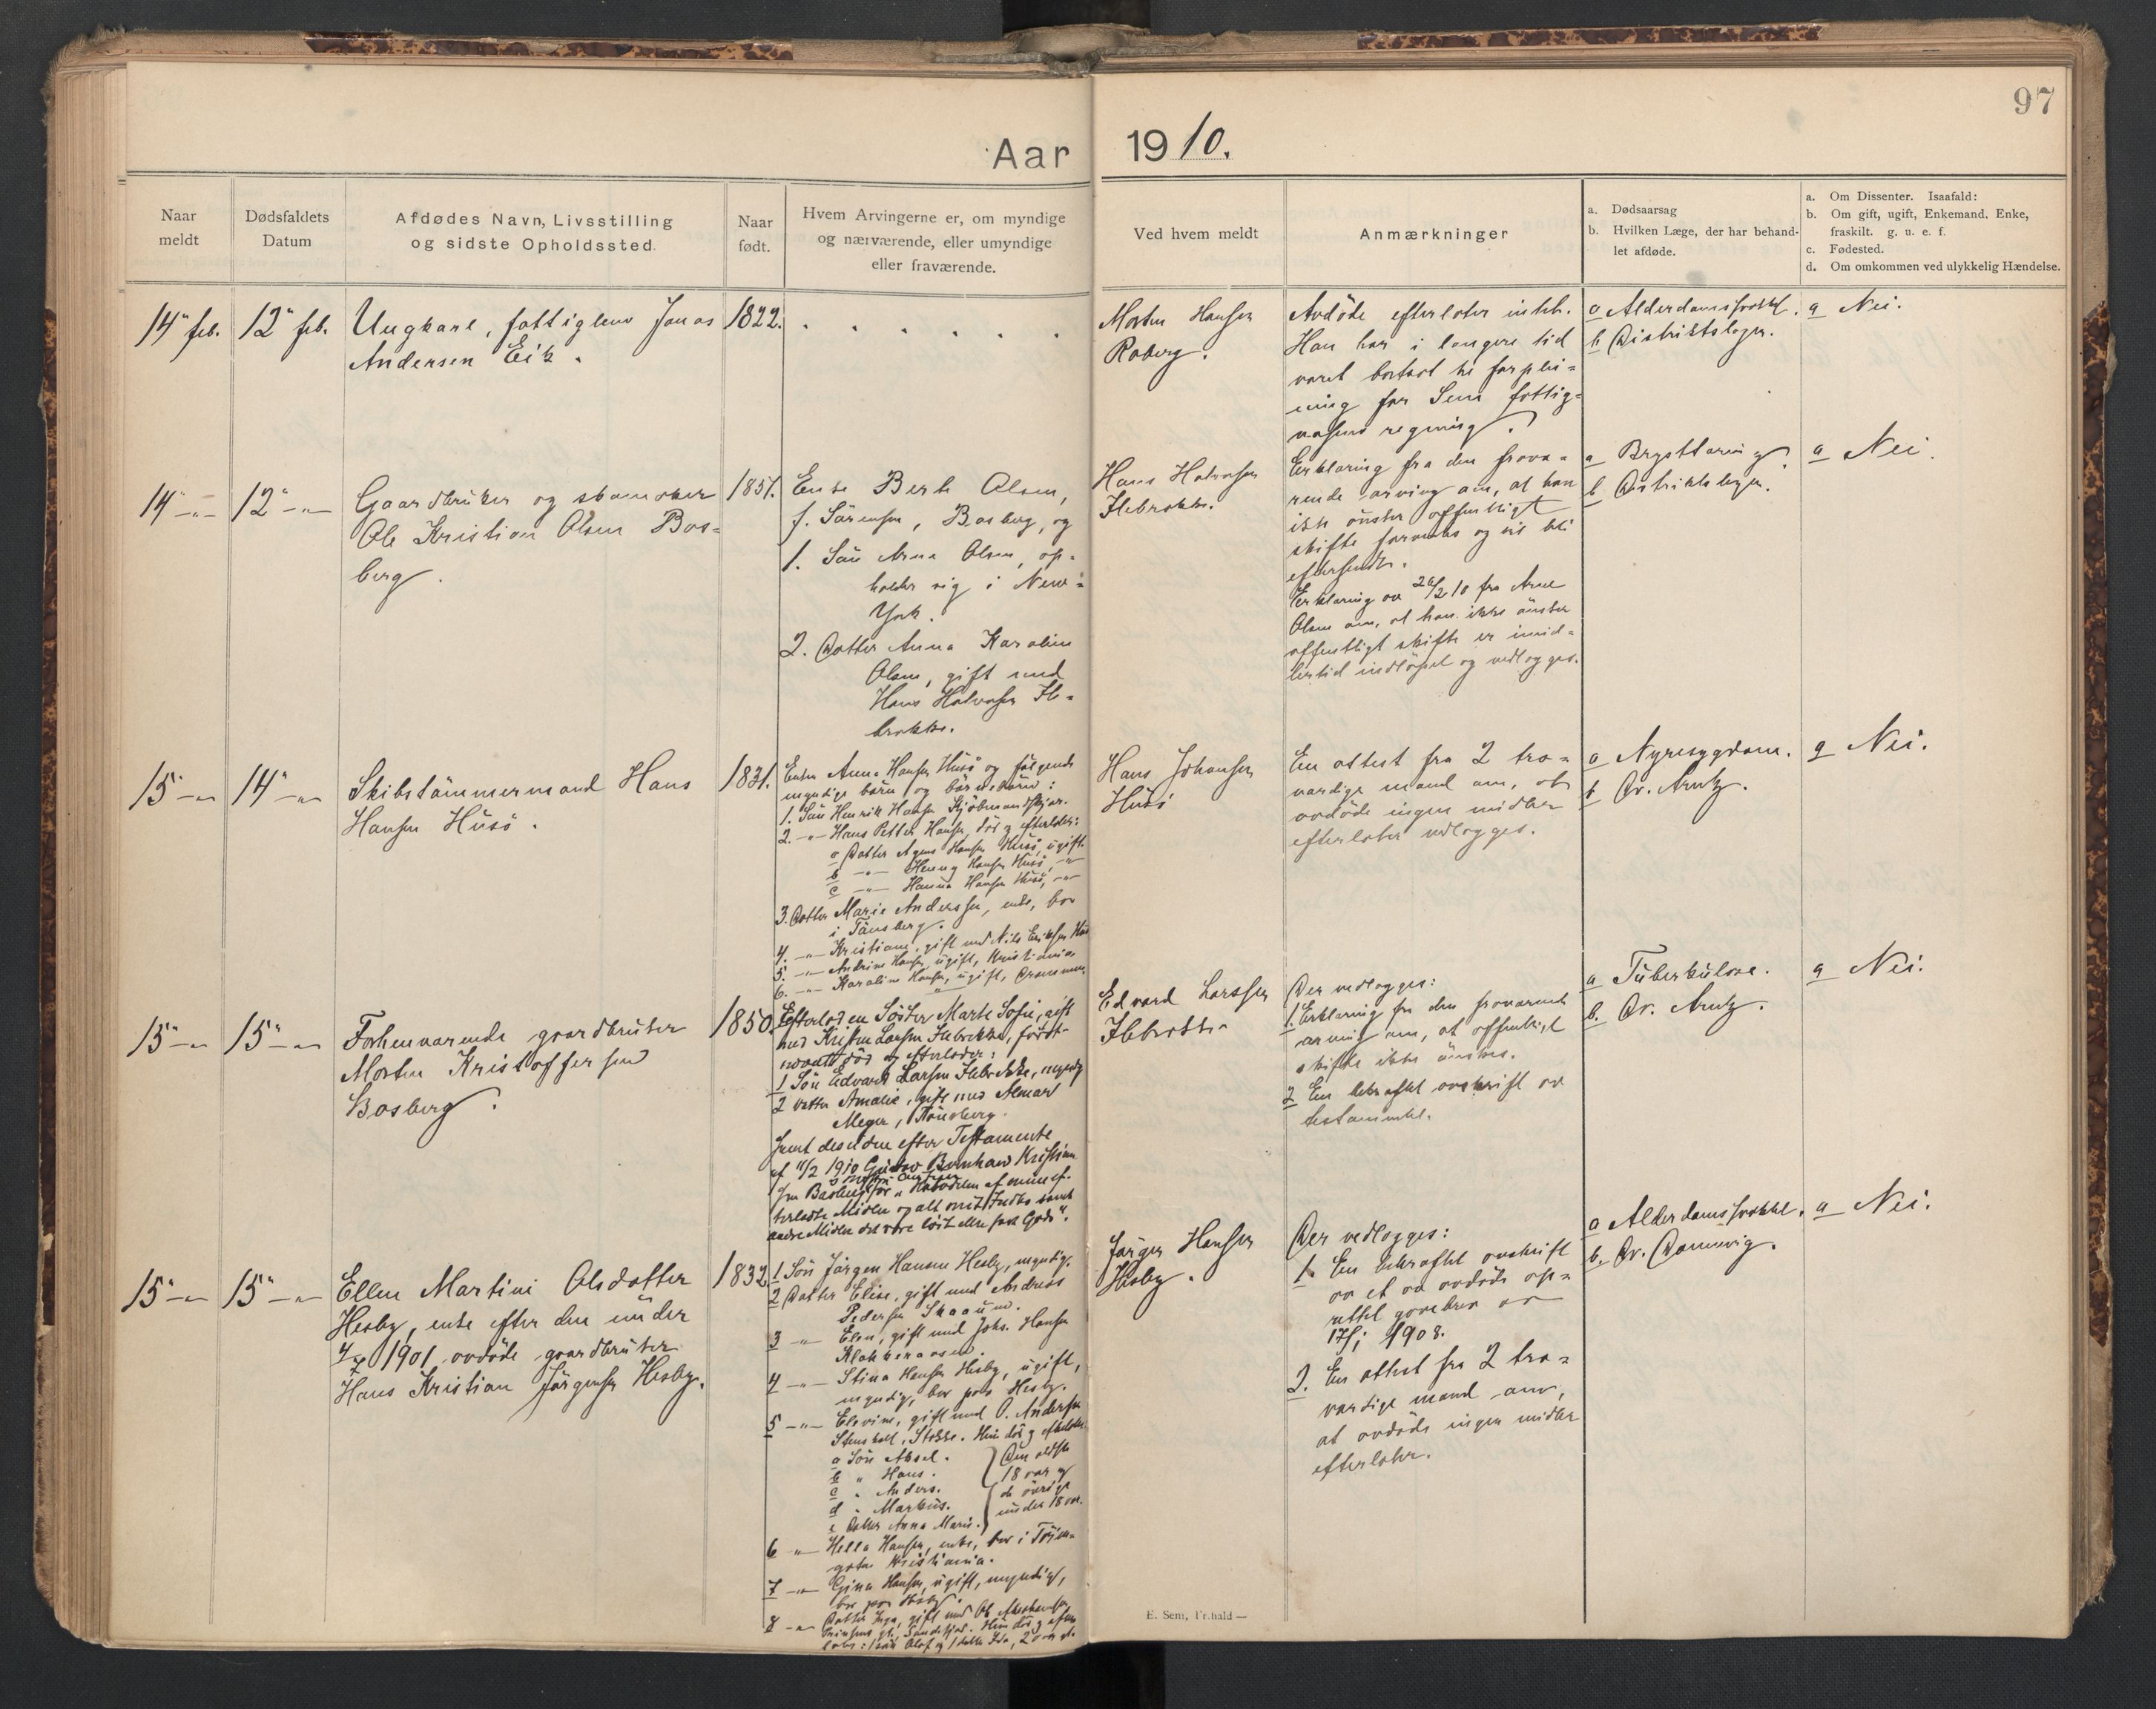 97
Aar 1910.
Naar meldt
Dødsfaldets Datum
Afdødes Navn, Livsstilling og sidste Opholdssted.
Naar født.
Hvem Arvingerne er, om myndige og nærværende, eller umyndige eller fraværende.
Ved hvem meldt
Anmærkninger
a. Dødsaarsag
b. Hvilken Læge, der har behandlet afdøde.
a. Om Dissenter. Isaafald:
b. Om gift, ugift, Enkemand. Enke, fraskilt. g. u. e. f.
c. Fødested.
d. Om omkommen ved ulykkelig Hændelse.
14" feb.
12" feb.
Ungkarl, fattiglem Jonas
Andersen Eik.
1822.
Morten Hansen
Roberg.
Avdöde efterlater intet.
Han har i længere tid
været bortsat til forplei=
ning for Sem fattig=
væsens regning.
a Alderdomssvækkel.
b Distriktslægen.
a Nei.
14"-"-
12"-"-
Gaardbruker og skomaker
Ole Kristian Olsen Bas=
berg.
1857.
Enke Berte Olsen,
f. Sörensen, Basberg, og
1. Sön Arne Olsen, op=
holder sig i New=
York.
2. Datter Anna Karoline
Olsen, gift med
Hans Halvorsen Ile=
brekke.
Hans Halvorsen
Ilebrekke.
Erklæring fra den fravæ=
rende arving om, at han
ikke önsker offentligt
skifte forventes og vil bli
eftersendt.
Erklæring av 26/2 10 fra Arne
Olsen om, at han ikke önsker
offentligt skifte er imid=
lertid indlöpet og vedlægges.
a Brysttæring.
b Distriktslægen.
a Nei.
15"-"-
14"-"-
Skibstömmermand Hans
Hansen Husö.
1831.
Enken Anna Hansen Husö og fölgende
myndige börn og börnebörn:
1. Sön Henrik Hansen Kjöbmandskjær.
2. -"- Hans Petter Hansen, död og efterlater:
a Datter Agnes Hansen Husö, ugift.
b -"- Henny Hansen Husö, -"-
c -"- Hanna Hansen Husö, -"-
3. Datter Marie Anderssen, enke, bor
i Tönsberg.
4. -"- Kristiane, gift med Nils Eriksen Husö
5 -"- Andrine Hansen, ugift, Kristiania
6. -"- Karoline Hansen, ugift, Drammen
Hans Johansen
Husö
En attest fra 2 tro=
værdige mænd om, at
avdöde ingen midler
efterlater vedlægges.
a Nyresygdom.
b Dr. Arntz.
a Nei.
15"-"-
15"-"-
Forhenværende gaardbruker
Morten Kristoffersen
Basberg.
1850.
Efterlod en Söster Marte Sofie, gift
med Kristen Larsen Ilebrekke, först-
nævnte död og efterlader:
1 Sön Edvard Larsen Ilebrekke, myndig
2 Datter Amalie, gift med Almard
Meyer, Tönsberg.
Samt desuden efter Testamente
af 11/2 1910 Gustav Bernhard Kristian
sen Basberg
terladte Midler og alt mit Indbo samt
andre Midler det være löst eller fast Gods".
Edvard Larssen
Ilebrekke
Der vedlægges:
1. Erklæring fra den fraværende
arving om, at offentligt
skifte ikke önskes.
2 En bekræftet avskrift av
testamentet.
a Tuberkulose.
b. Dr. Arntz.
a Nei.
15"-"-
15"-"-
Ellen Martine Olsdatter
Hesby, enke efter den under
4/7 1901 avdöde gaardbruker
Hans Kristian Jörgensen Hesby.
1832
1 Sön Jörgen Hansen Hesby, myndig.
2 Datter Elise, gift med Andreas
Pedersen Skaaum.
3 -"- Elen, gift med Johs. Hansen
Klokkeraasen.
4 -"- Stina Hansen Hesby, ugift,
myndig, bor paa Hesby.
5 -"- Elevine, gift med O. Andersen
Stensholt, Stokke. Hun död og efterlater:
a Sön Aksel.
b " Hans.
c " Anders.
d " Markus.
e Datter Anna Marie.
Den ældste
18 aar og
de övrige
under 18 aar.
6 -"- Hella Hansen, enke, bor i
gaten Kristiania.
7 -"- Gina Hansen, ugift, myndig,
bor paa Hesby.
8 -"- Datter Inga, gift med Ole
Prinsens gt., Sandefjord. Hun död og efter
later: 1 sön Olaf og 1 datter Ida, 2 aar gl.
Jörgen Hansen
Hesby.
Der vedlægges:
1. En bekræftet avskrift
av et av avdöde op=
rettet gavebrev av
17/1 1908.
2. En attest fra 2 tro=
værdige mænd om,
at avdöde ingen midler
efterlater.
a Alderdomssvækkel.
b. Dr. Dannevig.
a Nei.
E. Sem, Fr.hald —